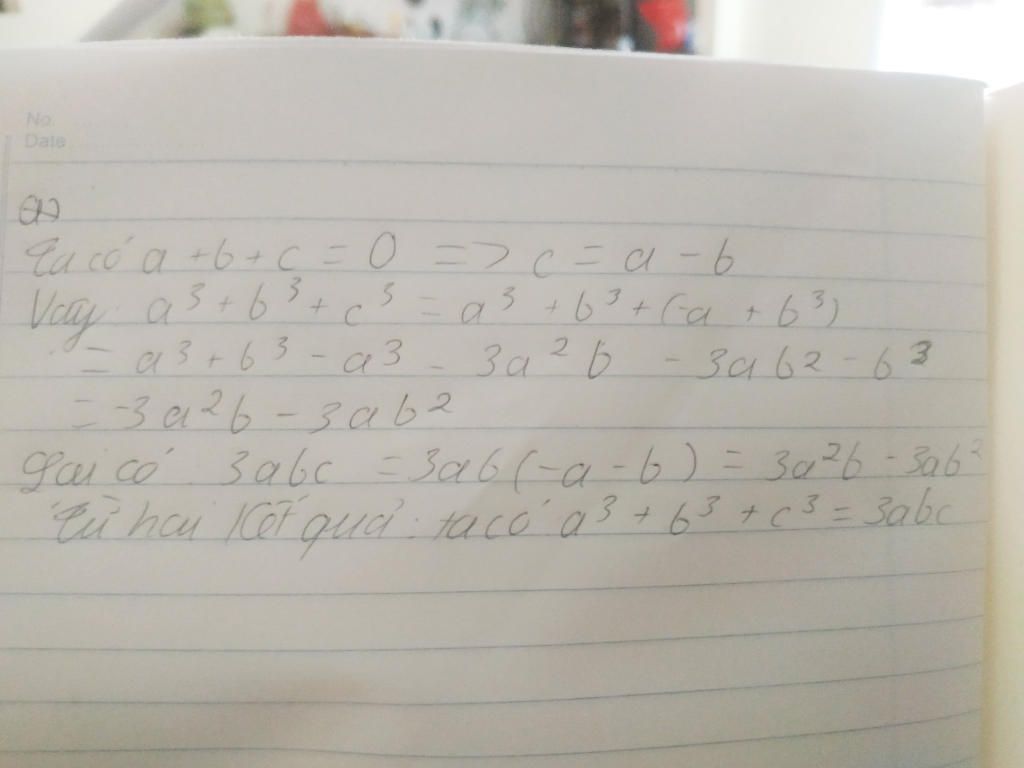 No.
Date
a)
Ta có a + b + c = 0 => c = a - b
Vậy: a³ + b³ + c³ = a³ + b³ + (-a + b³)
= a³ + b³ - a³ - 3a²b - 3ab2 - b³
= -3a²b - 3ab²
Lại có: 3abc = 3ab(-a - b) = 3a²b - 3ab²
Từ hai kết quả: ta có a³ + b³ + c³ = 3abc